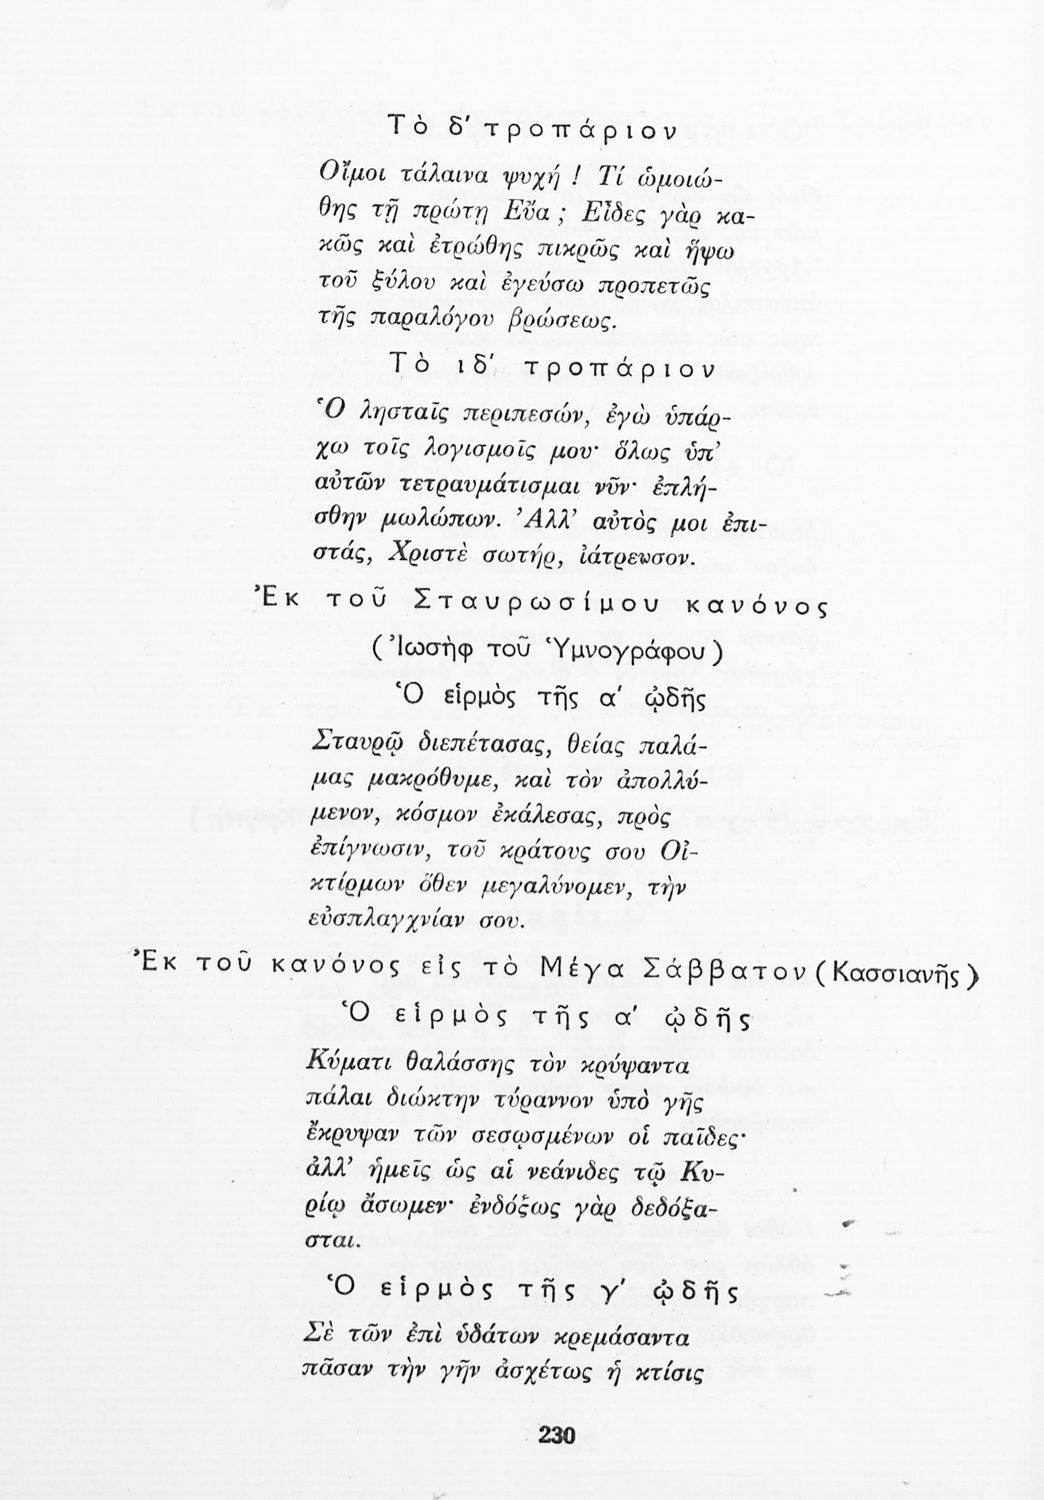 Τὸ δ′ τροπάριον
Οἴμοι τάλαινα ψυχή ! Τί ὡμοιώ-
θης τῇ πρώτῃ Εὔα ; Εἶδες γὰρ κα-
κῶς καὶ ἐτρώθης πικρῶς καὶ ἥψω
τοῦ ξύλου καὶ ἐγεύσω προπετῶς
τῆς παραλόγου βρώσεως.
Τὸ ιδ′ τροπάριον
Ὁ λησταῖς περιπεσών, ἐγὼ ὑπάρ-
χω τοῖς λογισμοῖς μου· ὅλως ὑπ’
αὐτῶν τετραυμάτισμαι νῦν· ἐπλή-
σθην μωλώπων. Ἀλλ’ αὐτὸς μοι ἐπι-
στάς, Χριστὲ σωτήρ, ἰάτρευσον.
Ἐκ τοῦ Σταυρωσίμου κανόνος
(Ἰωσὴφ τοῦ Ὑμνογράφου)
Ὁ εἱρμὸς τῆς α′ ᾠδῆς
Σταυρῷ διεπέτασας, θείας παλά-
μας μακρόθυμε, καὶ τὸν ἀπολλύ-
μενον, κόσμον ἐκάλεσας, πρὸς
ἐπίγνωσιν, τοῦ κράτους σου Οἰ-
κτίρμων ὅθεν μεγαλύνομεν, τὴν
εὐσπλαγχνίαν σου.
Ἐκ τοῦ κανόνος εἰς τὸ Μέγα Σάββατον (Κασσιανῆς)
Ὁ εἱρμὸς τῆς α′ ᾠδῆς
Κύματι θαλάσσης τὸν κρύψαντα
πάλαι διώκτην τύραννον ὑπὸ γῆς
ἔκρυψαν τῶν σεσῳσμένων οἱ παῖδες·
ἀλλ’ ἡμεῖς ὡς αἱ νεάνιδες τῷ Κυ-
ρίῳ ᾄσωμεν· ἐνδόξως γὰρ δεδόξα-
σται.
Ὁ εἱρμὸς τῆς γ′ ᾠδῆς
Σὲ τῶν ἐπὶ ὑδάτων κρεμάσαντα
πᾶσαν τὴν γῆν ἀσχέτως ἡ κτίσις
230